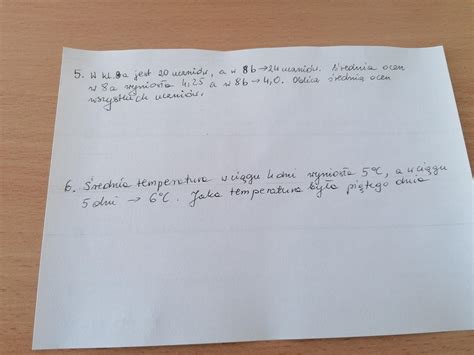 5. W kl. 8a jest 20 uczniów, a w 8b → 24 uczniów. Średnia ocen
w 8a wyniosła 4,25 a w 8b → 4,0. Oblicz średnią ocen
wszystkich uczniów.
6. Średnia temperatura w ciągu 4 dni wyniosła 5°C, a w ciągu
5 dni → 6°C. Jaka temperatura była piątego dnia